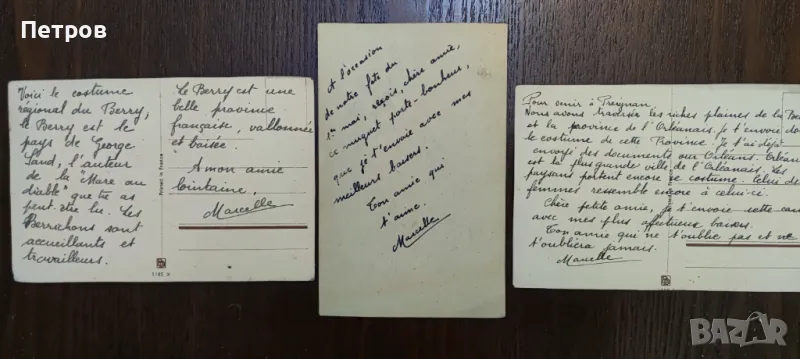 Петров
Voici le costume
régional du Berry,
le Berry est le
pays de George
Sand, l'auteur
de la "Mare au
diable" que tu as
peut-être lu. Les
Berrichons sont
accueillants et
travailleurs.
Le Berry est une
belle province
française, vallonnée
et boisée.
A mon amie
lointaine,
Marcelle
Printed in France
A l'occasion
de notre fête du
1er mai, reçois, chère amie,
ce muguet porte-bonheur,
que je t'envoie avec mes
meilleurs baisers.
Ton amie qui
t'aime.
Marcelle
Pour venir à
Nous avons traversé les riches plaines de la
et la province de l'Orléanais. Je t'envoie
le costume de cette Province. Je t'ai déjà
envoyé des documents sur Orléans.
est la plus grande ville de l'Orléanais. Les
paysans portent encore ce costume. Celui de
femmes ressemble encore à celui-ci.
Chère petite amie, je t'envoie cette
avec mes plus affectueux baisers.
Ton amie qui ne t'oublie pas et ne
t'oubliera jamais.
Marcelle
BAZAR